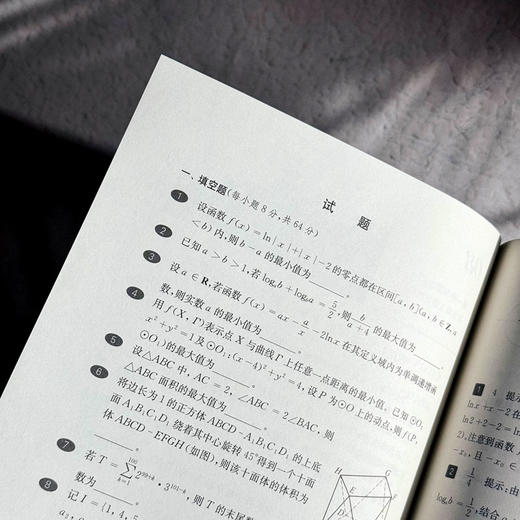 试 题
一、填空题(每小题 8 分,共 64 分)
1 设函数 f(x)=ln|x|+|x|-2 的零点都在区间[a, b](a, b∈Z, a
<b)内,则 b-a 的最小值为______。
2 已知 a>b>1,若 log_a b+log_b a=5/2,则 b/(a+4) 的最大值为______。
3 设 a∈R,若函数 f(x)=ax-a/x-2lnx 在其定义域内为单调递增函
数,则实数 a 的最小值为______。
用 f(X, Γ)表示点 X 与曲线 Γ 上任意一点距离的最小值。已知⊙O:
x²+y²=1 及⊙O₁:(x-4)²+y²=4,设 P 为⊙O 上的动点,则 f(P,
⊙O₁)的最大值为______。
5 设△ABC 中,AC=2,∠ABC=2∠BAC,则
△ABC 面积的最大值为______。
6 将边长为 1 的正方体 ABCD-A₁B₁C₁D₁ 的上底
面 A₁B₁C₁D₁ 绕着其中心旋转 45°得到一个十面
体 ABCD-EFGH(如图),则该十面体的体积为
7 若 T=∑_{k=1}^{100} 2^{99+k}·3^{101-k},则 T 的末尾数
数为______。
8 记 I={1, 4, 5
H
G
E
F
D
1 4 提示:
lnx+x-2 在
ln2+2-2=
2),注意到函数
,且-x₀∈
2 1/4 提示:由
log_a b=1/2,结合